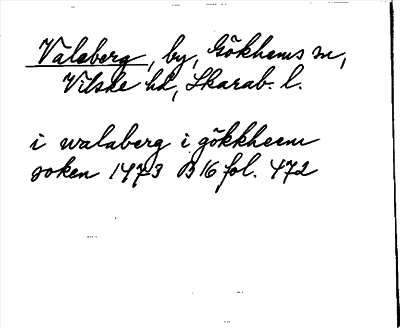 Valaberg, by, Gökhems sn,
Vilske hd, Skarab. l.
i walaberg i gökkheem
soken 1473 B 16 fol. 472